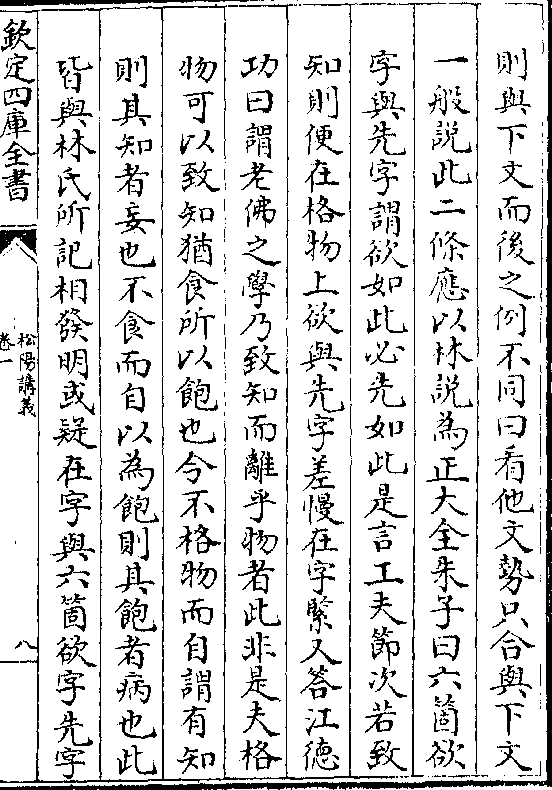 則與下文而後之例不同曰看他文勢只合與下文
一般說此二條應以林說為正大全朱子曰六箇欲
字與先字謂欲如此必先如此是言工夫節次若致
知則便在格物上欲與先字差慢在字緊又答江德
功曰謂老佛之學乃致知而離乎物者此非是夫格
物可以致知猶食所以飽也今不格物而自謂有知
則其知者妄也不食而自以為飽則其飽者病也此
皆與林氏所記相發明或疑在字與六箇欲字先字
欽定四庫全書
松陽講義
卷一
八